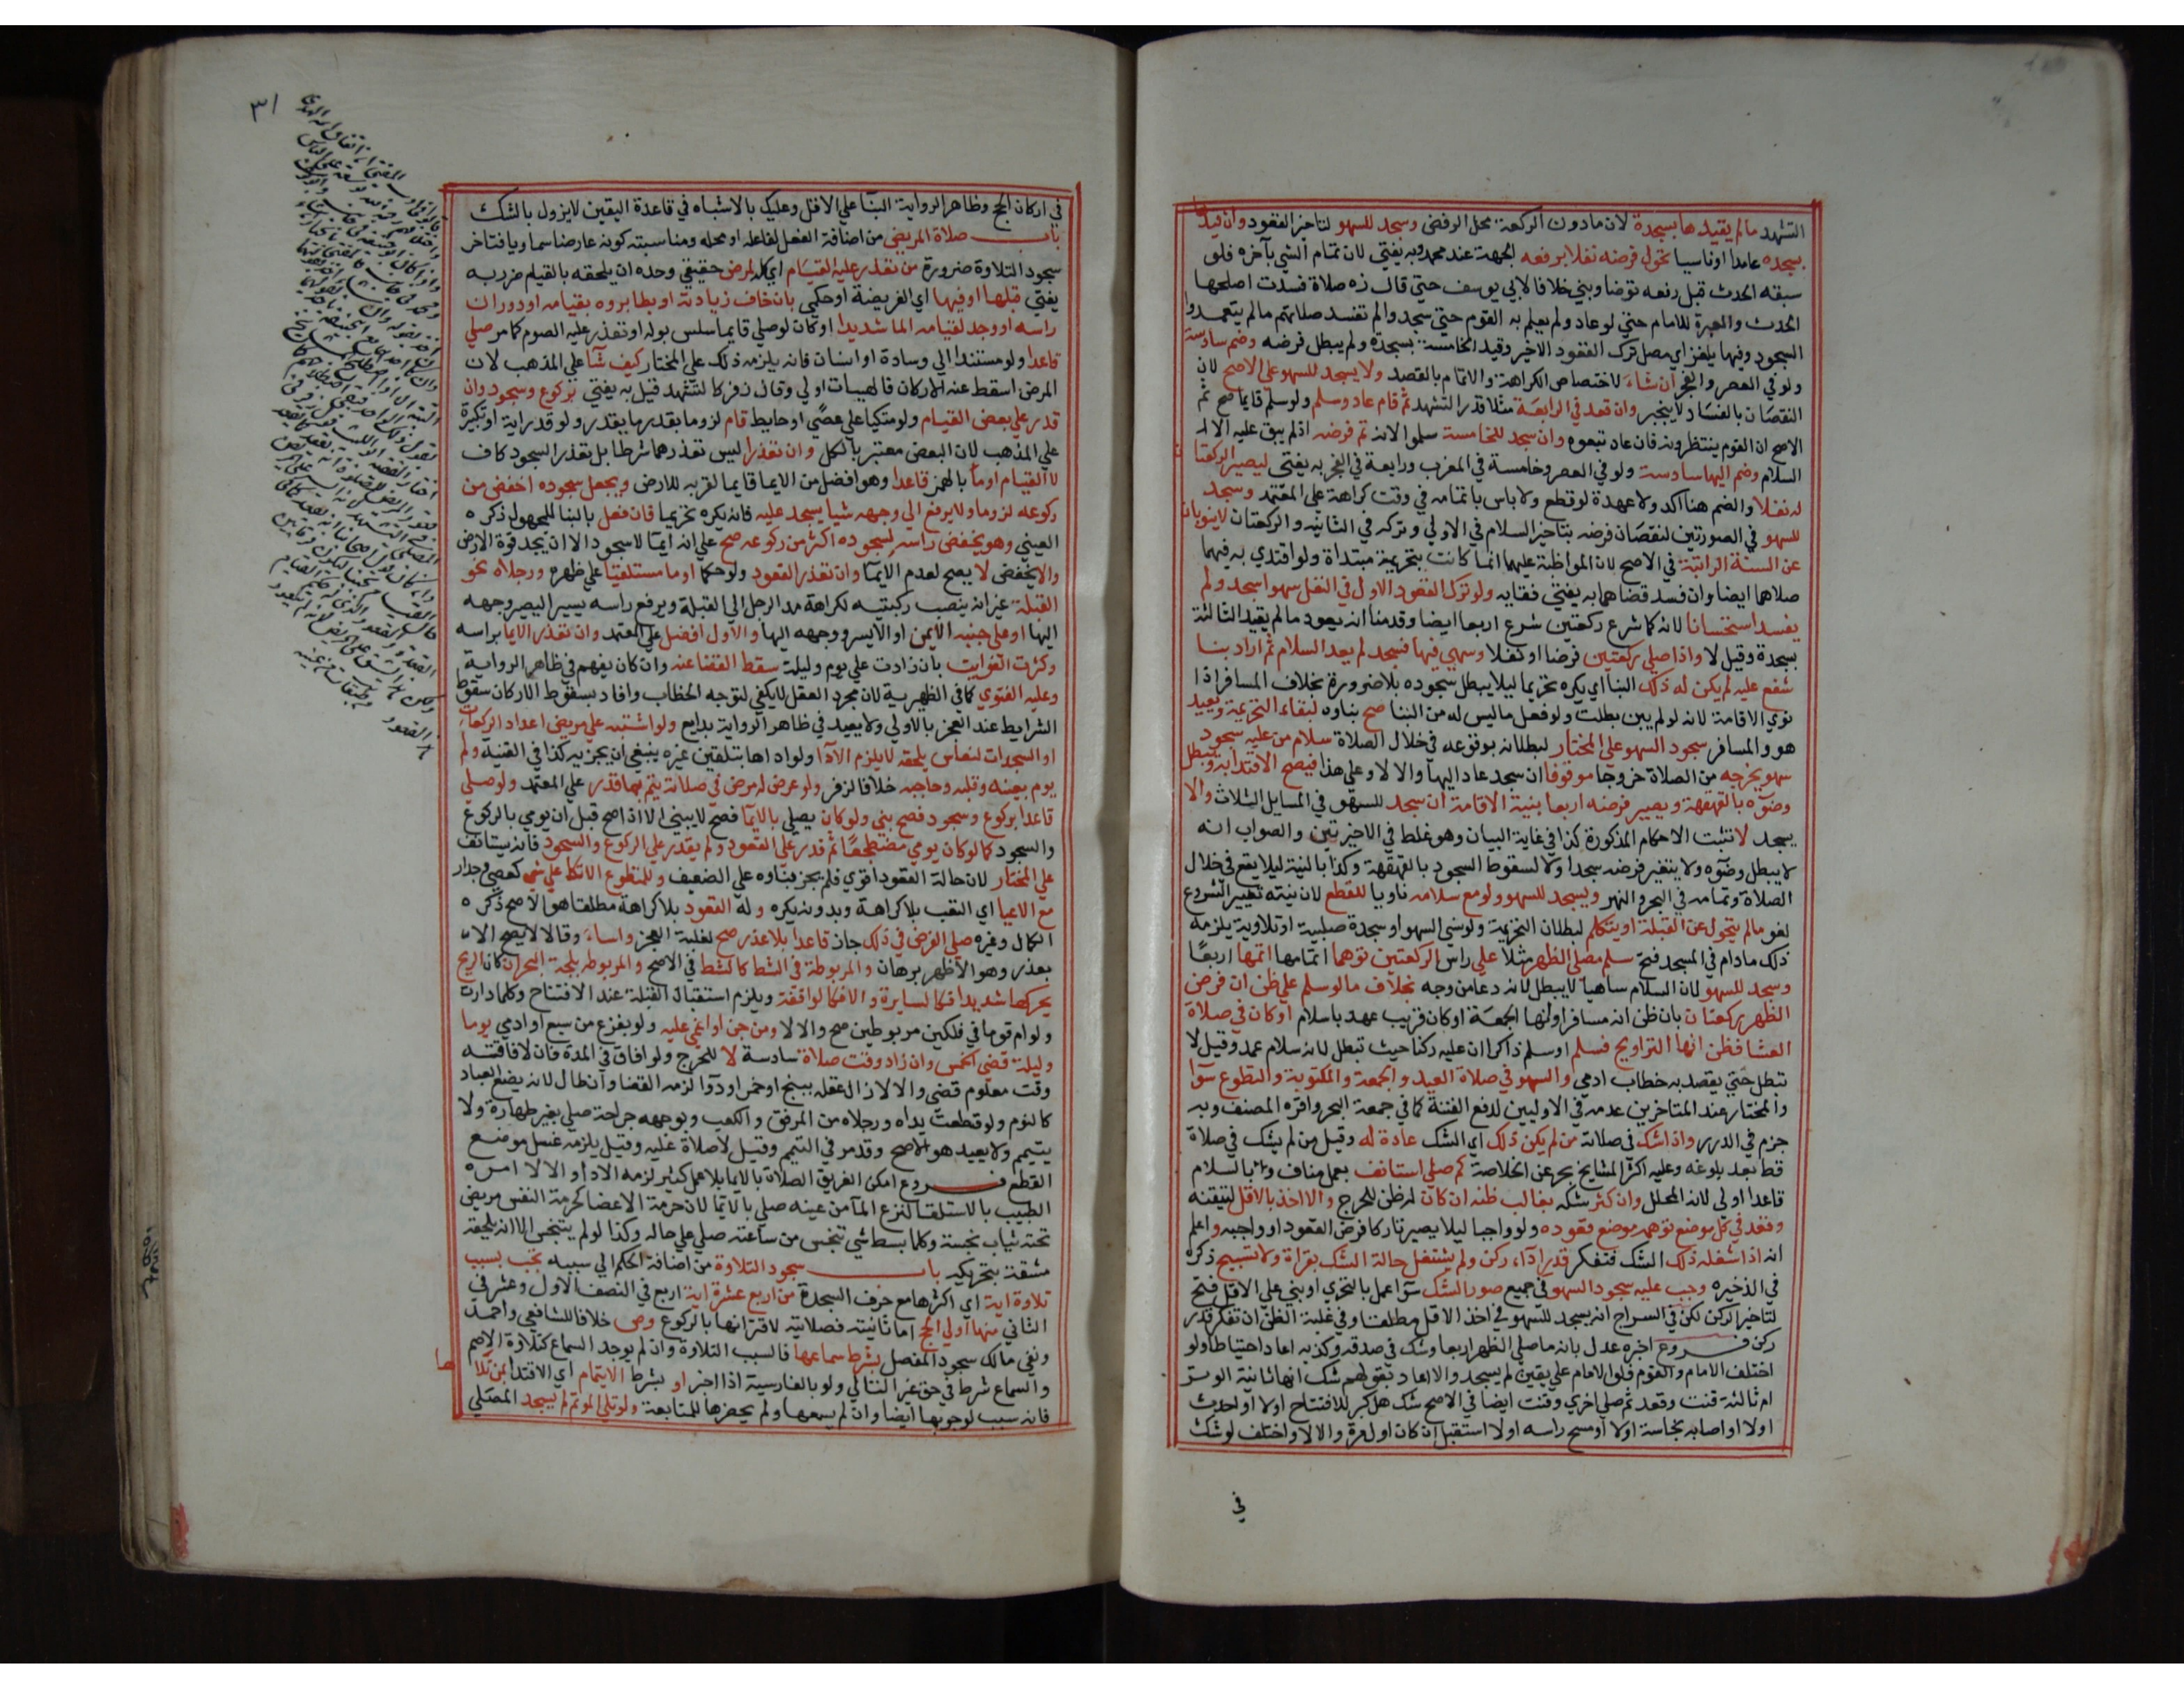 التشهد مالم يقيدها بسجدة لان مادون الركعة محل الرفض وسجد للسهو لتاخير القعود وان قيدها
بسجدة عامدا اوناسيا تحول فرضه نفلا برفعه الجبهة عند محمد وبه يفتي لان تمام الشي بآخره فلو
سبقه الحدث قبل رفعه توضا وبني خلافا لابي يوسف حتي قال زه صلاة فسدت اصلحها
الحدث والعبرة للامام حتي لو عاد ولم يعلم به القوم حتي سجدوا لم تفسد صلاتهم مالم يتعمدوا
السجود وفيها يلغز اي مصل ترك القعود الاخير وقيد الخامسة بسجدة ولم يبطل فرضه وضم سادسة
ولو في العصر والفجر ان شاء لاختصاص الكراهة والاتمام بالقصد ولا يسجد للسهو علي الاصح لان
النقصان بالفساد لا ينجبر وان قعد في الرابعة مثلا قدر التشهد ثم قام عاد وسلم ولو سلم قايما صح ثم
الاصح ان القوم ينتظرونه فان عاد تبعوه وان سجد للخامسة سلموا لانه تم فرضه اذ لم يبق عليه الا
السلام وضم اليها سادسة ولو في العصر وخامسة في المغرب ورابعة في الفجر به يفتي ليصير الركعتا
له نفلا والضم هنا اكد ولا عهدة لو قطع ولا باس باتمامه في وقت كراهة علي المعتمد وسجد
للسهو في الصورتين لنقصان فرضه بتاخير السلام في الاولي وتركه في الثانيه والركعتان لاينوبان
عن السنة الراتبة في الاصح لان المواظبة عليهما انما كانت بتحريمة مبتداة ولو اقتدي به فيهما
صلاهما ايضا وان فسد قضاهما به يفتي نقايه ولو ترك القعود الاول في النفل سهوا سجد ولم
يفسد استحسانا لانه كما شرع ركعتين شرع اربعا ايضا وقدمنا انه يعود مالم يقيد الثالثة
بسجدة وقيل لا واذا صلي ركعتين فرضا او نفلا وسهي فيها فسجد لم بعد السلام ثم اراد بنا
شفع عليه لم يكن له ذلك البنا اي يكره تحريما ليلا يبطل سجوده بلا ضرورة بخلاف المسافر اذا
نوي الاقامة لانه لو لم يبن بطلت ولو فعل ماليس له من البنا صح بناوه لبقاء التحريمة ويعيد
هو والمسافر سجود السهو علي المختار لبطلانه بوقوعه في خلال الصلاة سلام من عليه سجود
سهو يخرجه من الصلاة خروجا موقوفا ان سجد عاد اليها والا لا وعلي هذا فيصح الاقتدا به ويبطل
وضوه بالقهقهة ويصير فرضه اربعا بنية الاقامة ان سجد للسهو في المسايل الثلاث والا
يسجد لا تثبت الاحكام المذكورة كذا في غاية البيان وهو غلط في الاخيرتين والصواب انه
لا يبطل وضوه ولا يتغير فرضه سجد اولا لسقوط السجود بالقهقهة وكذا بالنية ليلا يقع في خلال
الصلاة وتمامه في البحر والنهر ويسجد للسهو ولو مع سلامه ناويا للقطع لان نيته تغيير المشروع
لغو مالم يتحول عن القبلة او يتكلم لبطلان التحريمة ولو نسي السهو او سجدة صلبية او تلاوية يلزمه
ذلك مادام في المسجد فتح سلم مصلي الظهر مثلا علي راس الركعتين توهما اتمامها اتمها اربعا
وسجد للسهو لان السلام ساهيا لا يبطل لانه دعا من وجه بخلاف مالو سلم علي ظن ان فرض
الظهر ركعتان بان ظن انه مسافر اوانها الجمعة اوكان قريب عهد باسلام اوكان في صلاة
العشا فظن انها التراويح فسلم او سلم ذاكرا ان عليه ركنا حيث تبطل لانه سلام عمد وقيل لا
تبطل حتي يقصد به خطاب ادمي والسهو في صلاة العيد والجمعة والمكتوبة والتطوع سوآ
والمختار عند المتاخرين عدمه في الاوليين لدفع الفتنة كما في جمعة البحر واقره المصنف وبه
جزم في الدرر واذا شك في صلاته من لم يكن ذلك اي الشك عادة له وقيل من لم يشك في صلاة
قط بعد بلوغه وعليه اكثر المشايخ بحر عن الخلاصة كم صلي استانف بعمل مناف وبالسلام
قاعدا اولي لانه المحلل وان كثر شكه بغالب ظنه ان كان له ظن للحرج والا اخذ بالاقل لتيقنه
وقعد في كل موضع توهمه موضع قعوده ولو واجبا ليلا يصير تاركا فرض القعود او واجبه واعلم
انه اذا شغله ذلك الشك فتفكر قدر اداء ركن ولم يشتغل حالة الشك بقراة ولا تسبيح ذكره
في الذخيره وجب عليه سجود السهو في جميع صور الشك سوا عمل بالتحري او بني علي الاقل فتح
لتاخير الركن لكن في السراج انه يسجد للسهو في اخذ الاقل مطلقا وفي غلبة الظن ان تفكر قدر
ركن فروع اخبره عدل بانه ماصلي الظهر اربعا وشك في صدقه وكذبه اعاد احتياطا ولو
اختلف الامام والقوم فلو الامام علي يقين لم يسجد والا اعاد بقولهم شك انها ثانية الوتر
ام ثالثة قنت وقعد ثم صلي اخري وقنت ايضا في الاصح شك هل كبر للافتتاح اولا او احدث
اولا او اصابه نجاسة اولا او مسح راسه اولا استقبل ان كان اول مرة والا لا واختلف لو شك
في
٣١
في اركان الحج وظاهر الرواية البنا علي الاقل وعليك بالاشباه في قاعدة اليقين لا يزول بالشك
باب صلاة المريض من اضافة الفعل لفاعله او محله ومناسبته كونه عارضا سماويا فتاخر
سجود التلاوة ضرورة من تعذر عليه القيام اي كله لمرض حقيقي وحده ان يلحقه بالقيام ضرر به
يفتي قبلها او فيها اي الفريضة او حكمي بان خاف زيادته او بطا بروه بقيامه او دوران
راسه او وجد لقيامه الما شديدا او كان لو صلي قايما سلس بوله او تعذر عليه الصوم كما مر صلي
قاعدا ولو مستندا الي وسادة او انسان فانه يلزمه ذلك علي المختار كيف شآ علي المذهب لان
المرض اسقط عنه الاركان فالهيات اولي وقال زفر كالمتشهد قيل به يفتي بركوع وسجود وان
قدر علي بعض القيام ولو متكيا علي عصي او حايط قام لزوما بقدر ما يقدر ولو قدر اية او تكبيرة
علي المذهب لان البعض معتبر بالكل وان تعذرا ليس تعذرهما شرطا بل تعذر السجود كاف
لا القيام اومأ بالهمز قاعدا وهو افضل من الايما قايما لقربه للارض ويجعل سجوده اخفض من
ركوعه لزوما ولا يرفع الي وجهه شيا يسجد عليه فانه يكره تحريما فان فعل بالبنا للمجهول ذكره
العيني وهو يخفض راسه لسجوده اكثر من ركوعه صح علي انه ايمآ لا سجود الا ان يجد قوة الارض
والا يخفض لا يصح لعدم الايمآ وان تعذر القعود ولو حكما اوما مستلقيا علي ظهره ورجلاه نحو
القبلة غير انه ينصب ركبتيه لكراهة مد الرجل الي القبلة ويرفع راسه يسيرا ليصير وجهه
اليها او علي جنبه الايمن او الايسر ووجهه اليها والاول افضل علي المعتمد وان تعذر الايما براسه
وكثرت الفوايت بان زادت علي يوم وليلة سقط القضا عنه وان كان يفهم في ظاهر الرواية
وعليه الفتوي كما في الظهرية لان مجرد العقل لا يكفي لتوجه الخطاب وافاد بسقوط الاركان سقوط
الشرايط عند العجز بالاولي ولا يعيد في ظاهر الرواية بدايع ولو اشتبه علي مريض اعداد الركعات
او السجدات لنعاس يلحقه لا يلزم الادا ولو اداها بتلقين غيره ينبغي ان يجزيه كذا في القنية ولم
يوم بعينه وقلبه وحاجبه خلافا لزفر ولو عرض له مرض في صلاته يتم بما قدر علي المعتمد ولو صلي
قاعدا بركوع وسجود فصح بني ولو كان يصلي بالايمآ فصح لا يبني الا اذا صح قبل ان يومي بالركوع
والسجود كما لو كان يومي مضطجعا ثم قدر علي القعود ولم يقدر علي الركوع والسجود فانه يستانف
علي المختار لان حالة القعود اقوي فلم يجز بناوه علي الضعيف وللمتطوع الاتكا علي شي كعصي وجدار
مع الاعيا اي التعب بلا كراهة وبدونه يكره وله القعود بلا كراهة مطلقا هو الاصح ذكره
الكمال وغيره صلي الفرض في فلك جار قاعدا بلا عذر صح لغلبة العجز واساء وقالا لا يصح الا
بعذر وهو الاظهر برهان والمربوطة في الشط كالشط في الاصح والمربوطه بلجة البحر ان كان الريح
يحركها شديدا فكالسايرة والا فكالواقفة ويلزم استقبال القبلة عند الافتتاح وكلما دارت
ولو ام قوما في فلكين مربوطين صح والا لا ومن جن او اغمي عليه ولو بفزع من سبع او ادمي يوما
وليلة قضي الخمس وان زاد وقت صلاة سادسة لا للحرج ولو افاق في المدة فان لافاقته
وقت معلوم قضي والا لا زال عقله ببنج او خمر او دوآ لزمه القضا وان طال لانه بصنع العباد
كالنوم ولو قطعت يداه ورجلاه من المرفق والكعب وبوجهه جراحة صلي بغير طهارة ولا
يتيمم ولا يعيد هو الاصح وقد مر في التيمم وقيل لا صلاة عليه وقيل يلزمه غسل موضع
القطع فروع امكن الغريق الصلاة بالايما بلا عمل كثير لزمه الادا والا لا امره
الطبيب بالاستلقا لنزع المآ من عينه صلي بالايمآ لان حرمة الاعضا كحرمة النفس مريض
تحته ثياب نجسة وكلما بسط شي تنجس من ساعته صلي علي حاله وكذا لو لم يتنجس الا انه يلحقه
مشقة بتحريكه باب سجود التلاوة من اضافة الحكم الي سببه تجب بسبب
تلاوة اية اي اكثرها مع حرف السجدة من اربع عشرة اية اربع في النصف الاول وعشر في
الثاني منها اولي الحج اما ثانيته فصلاتية لاقترانها بالركوع وص خلافا للشافعي واحمد
ونفي مالك سجود المفصل بشرط سماعها فالسبب التلاوة وان لم يوجد السماع كتلاوة الاصم
والسماع شرط في حق غير التالي ولو بالفارسية اذا اخبر او بشرط الايتمام اي الاقتدا بمن تلا
ها
فانه سبب لوجوبها ايضا وان لم يسمعها ولم يحضرها للمتابعة ولو تلي الموتم لم يسجد المصلي